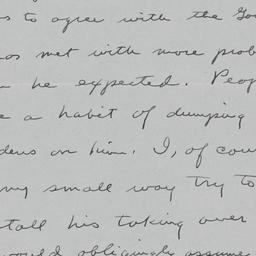 s to agree with the Go
os met with more prob
he expected. Peop
e a habit of dumping
dens on him. I, of cou
my small way try to
tall his taking over
would obligingly assume